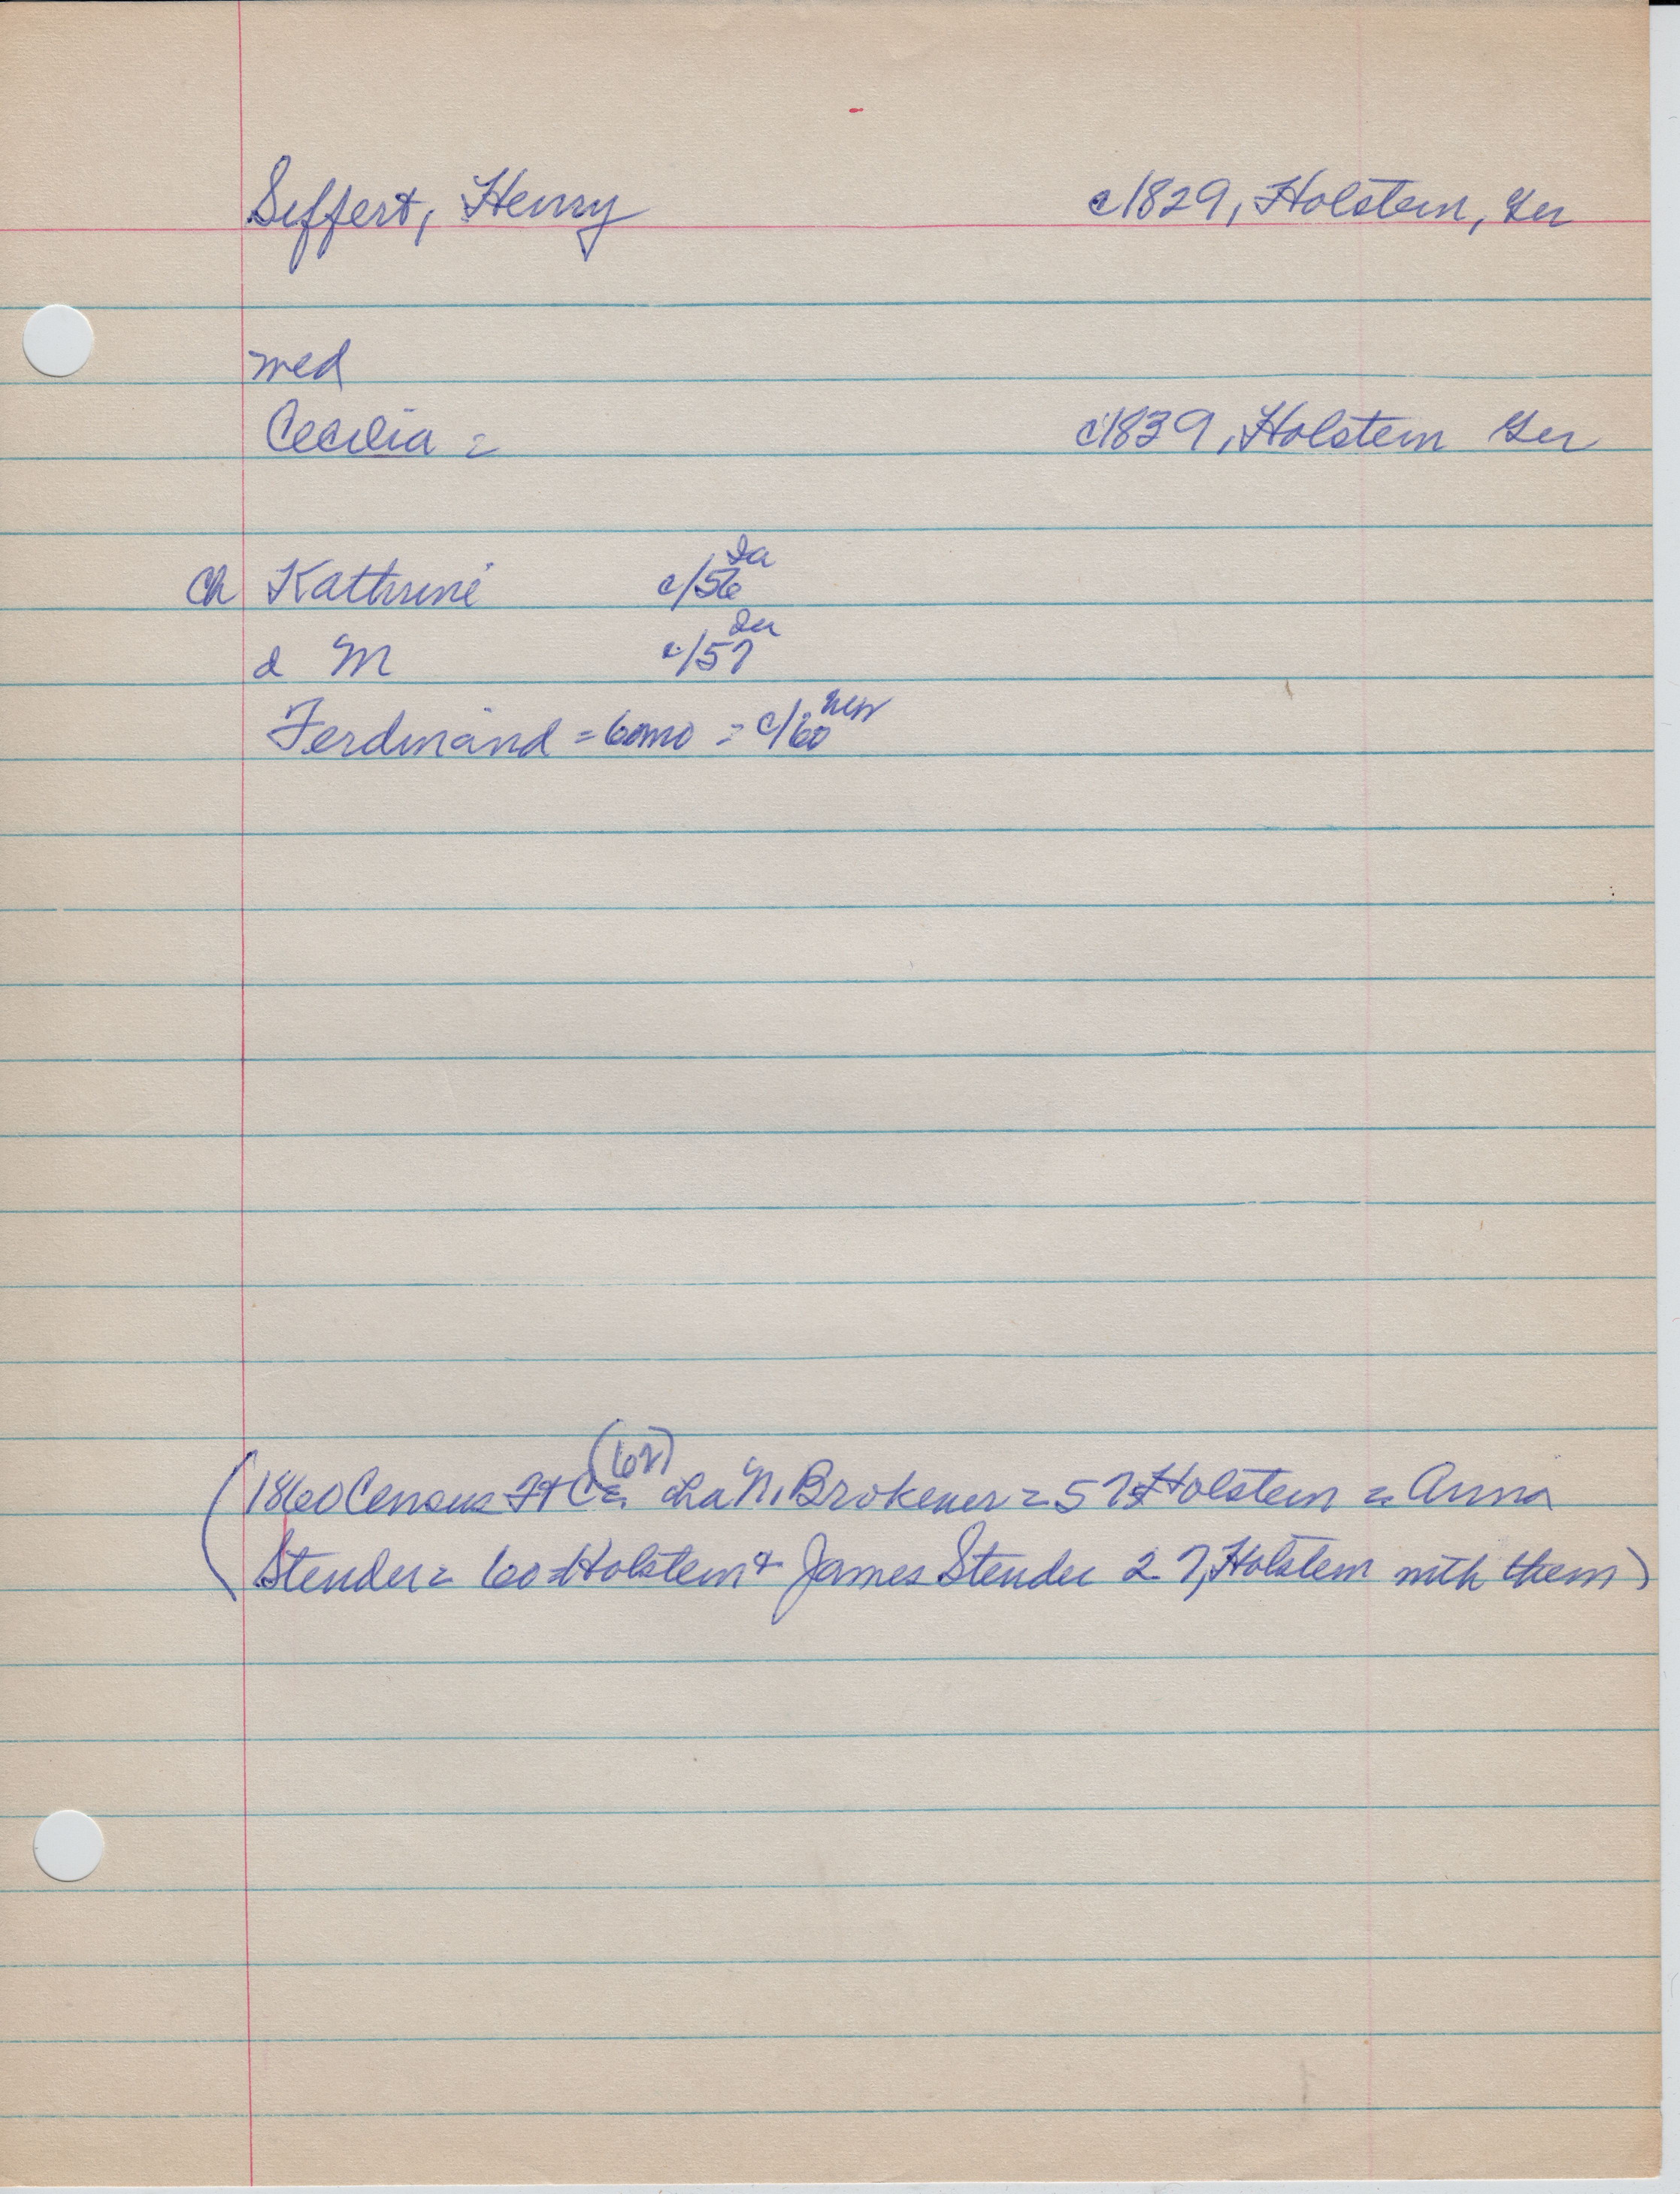 Seffert, Henry c1829, Holstein, Ger
med
Cecelia = c1839, Holstein Ger
Ch Kathrine c/56 Ia
d M c/57
Ferdinand = 6 mo = c/60 Neb
(1860 Census Ft C = (62) N. Brokener = 57 Holstein = Anna
Stender = 60 = Holstein + James Stender 27, Holstein with them)